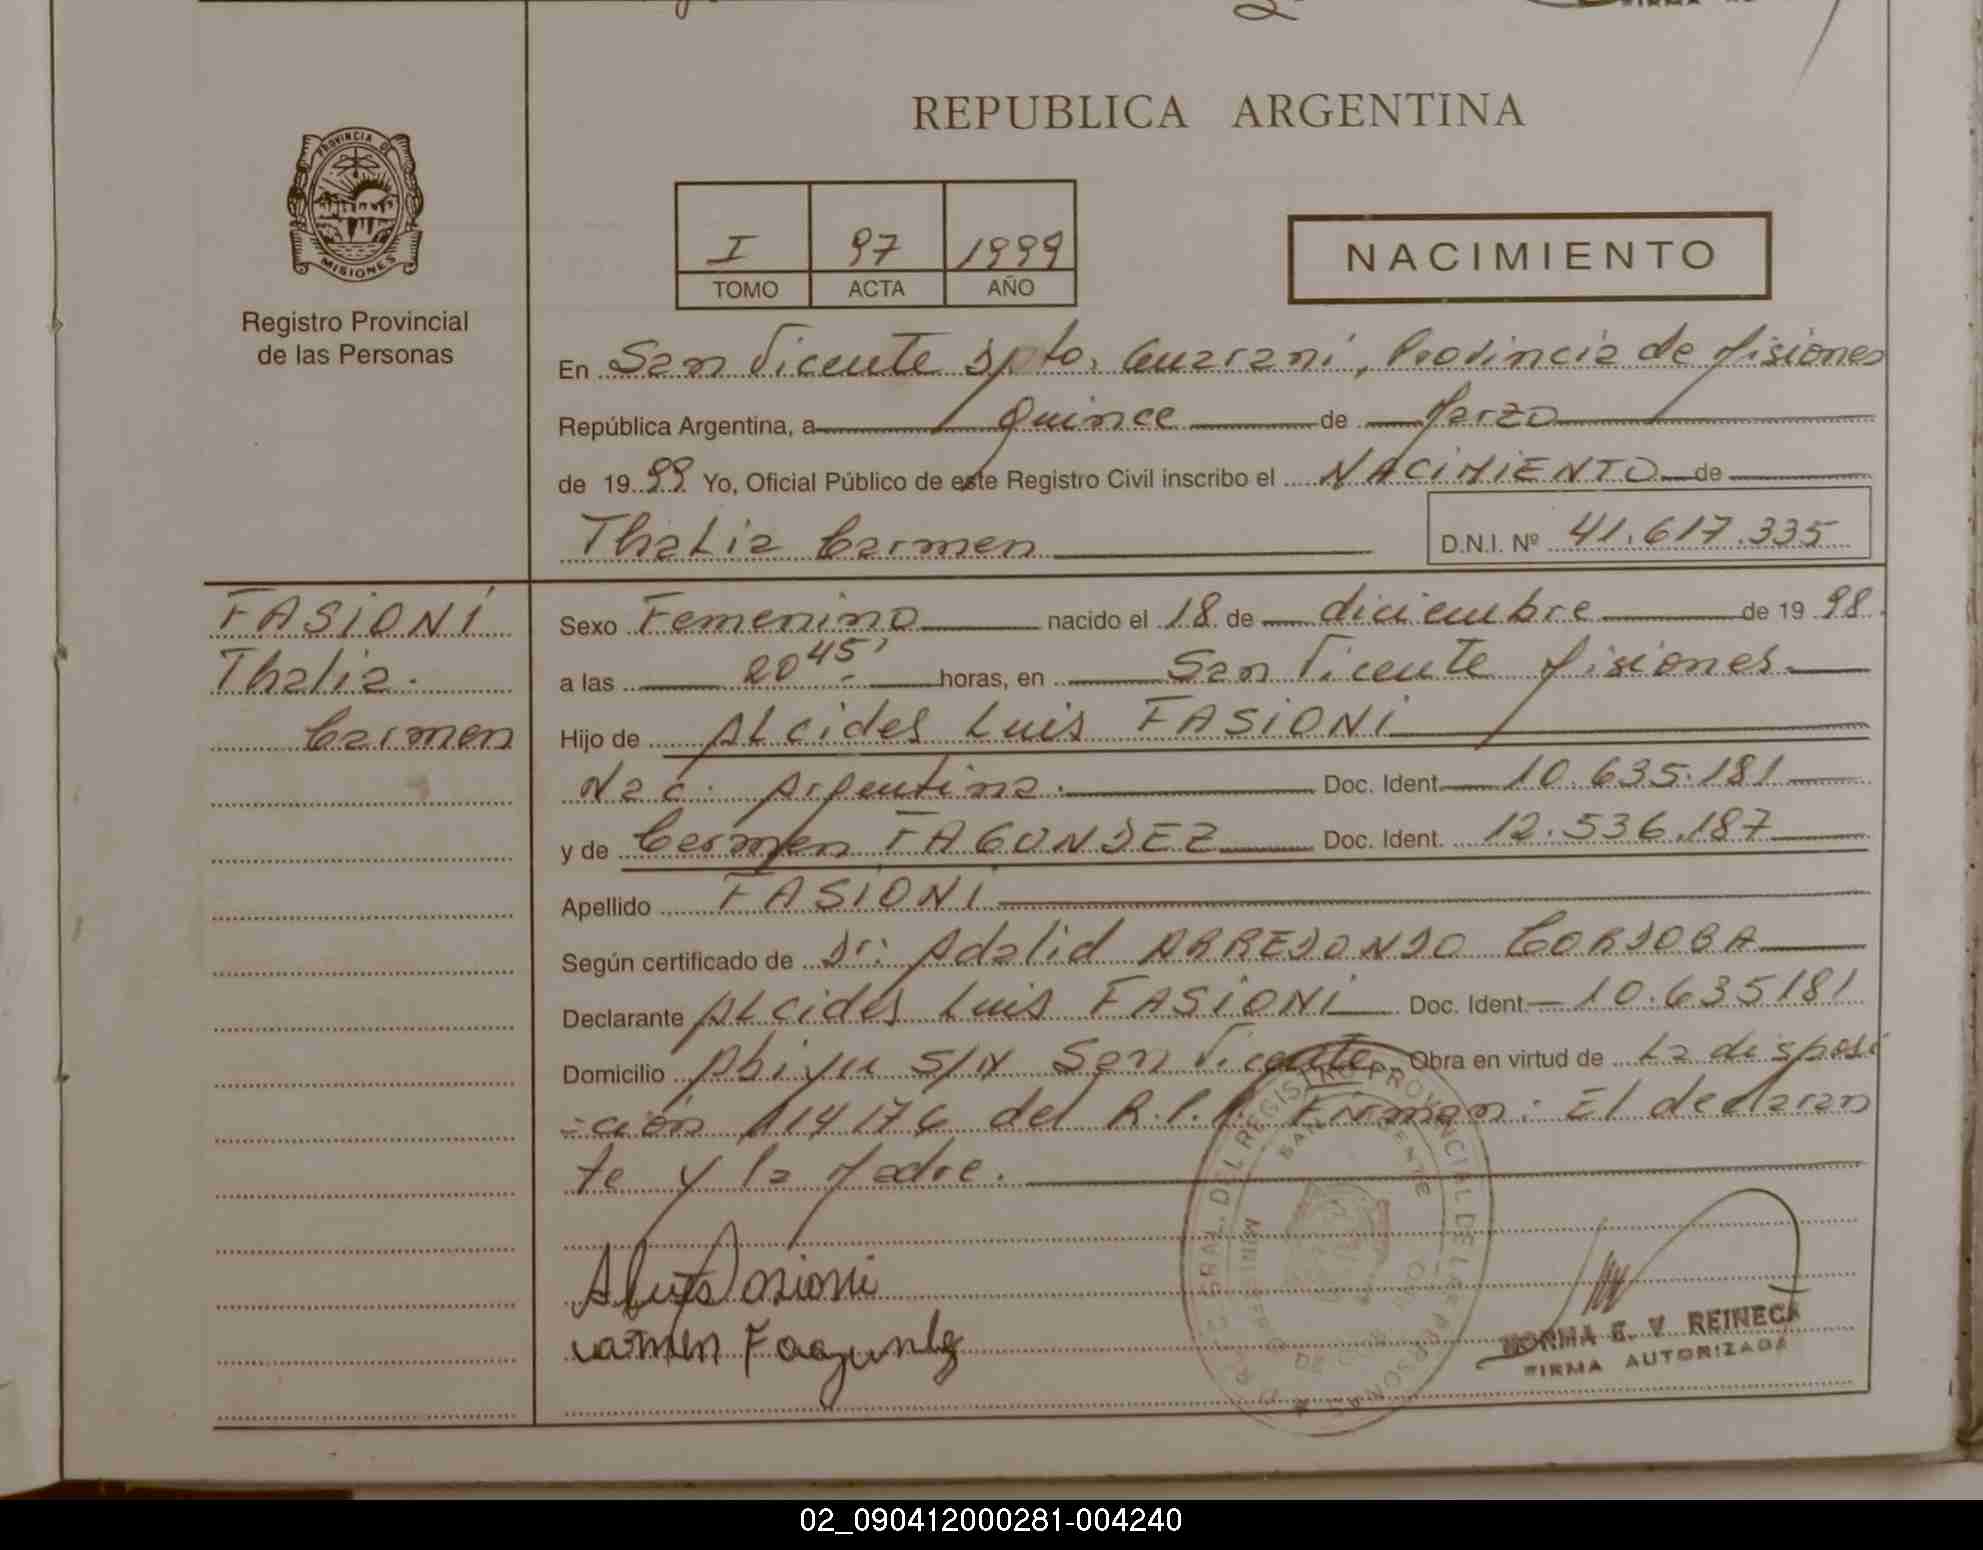 REPUBLICA ARGENTINA
PROVINCIA DE
MISIONES
Registro Provincial
de las Personas
I 97 1999
TOMO ACTA AÑO
NACIMIENTO
En San Vicente Dpto. Guarani, Provincia de Misiones
República Argentina, a Quince de Marzo
de 1999 Yo, Oficial Público de este Registro Civil inscribo el NACIMIENTO de
Thalia Carmen
D.N.I. Nº 41.617.335
FASIONI
Thalia
Carmen
Sexo Femenino nacido el 18 de diciembre de 1998.
a las 20 45' horas, en San Vicente Misiones.
Hijo de ALcides Luis FASIONI
Nac. Argentina. Doc. Ident. 10.635.181
y de Carmen FAGUNDEZ Doc. Ident. 12.536.187
Apellido FASIONI
Según certificado de Dr: Adalid ARREDONDO CORDOBA
Declarante ALcides Luis FASIONI Doc. Ident. 10.635181
Domicilio S/N San Vicente Obra en virtud de La disposi
=ción 114176 del R.P.P. Firman: El declaran
te y la Madre.
Carmen
NORMA E. V. REINECK
FIRMA AUTORIZADA
02_090412000281-004240